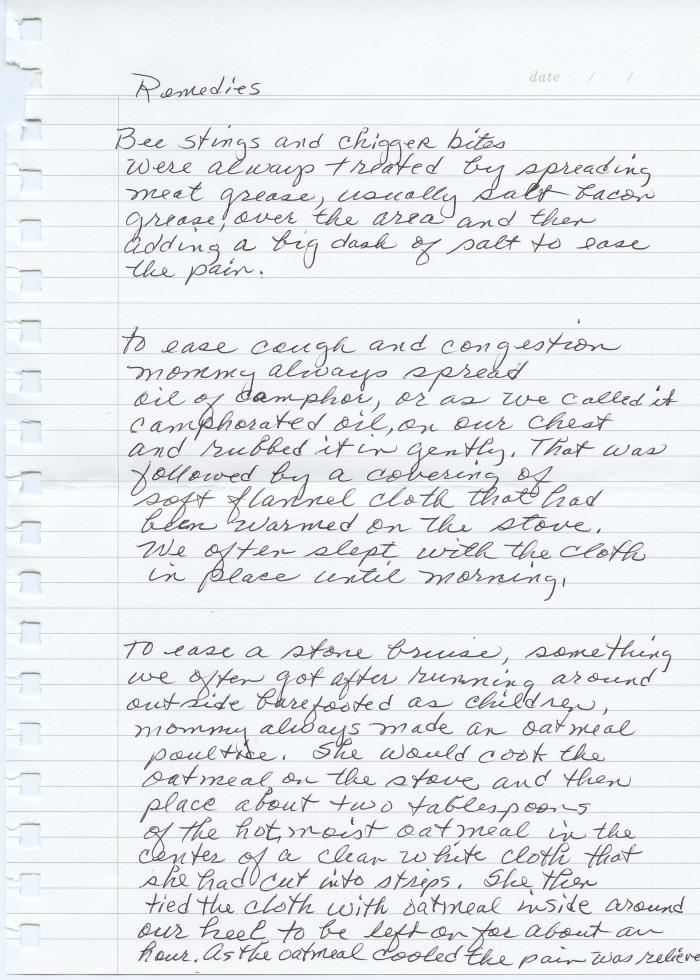 date / /
Remedies
Bee stings and chigger bites
were always treated by spreading
meat grease, usually salt bacon
grease, over the area and then
adding a big dash of salt to ease
the pain.
To ease cough and congestion
mommy always spread
oil of camphor, or as we called it
camphorated oil, on our chest
and rubbed it in gently. That was
followed by a covering of
soft flannel cloth that had
been warmed on the stove.
We often slept with the cloth
in place until morning.
To ease a stone bruise, something
we often got after running around
outside barefooted as children,
mommy always made an oatmeal
poultice. She would cook the
oatmeal on the stove and then
place about two tablespoons
of the hot, moist oatmeal in the
center of a clean white cloth that
she had cut into strips. She then
tied the cloth with oatmeal inside around
our heel to be left on for about an
hour. As the oatmeal cooled the pain was relieve